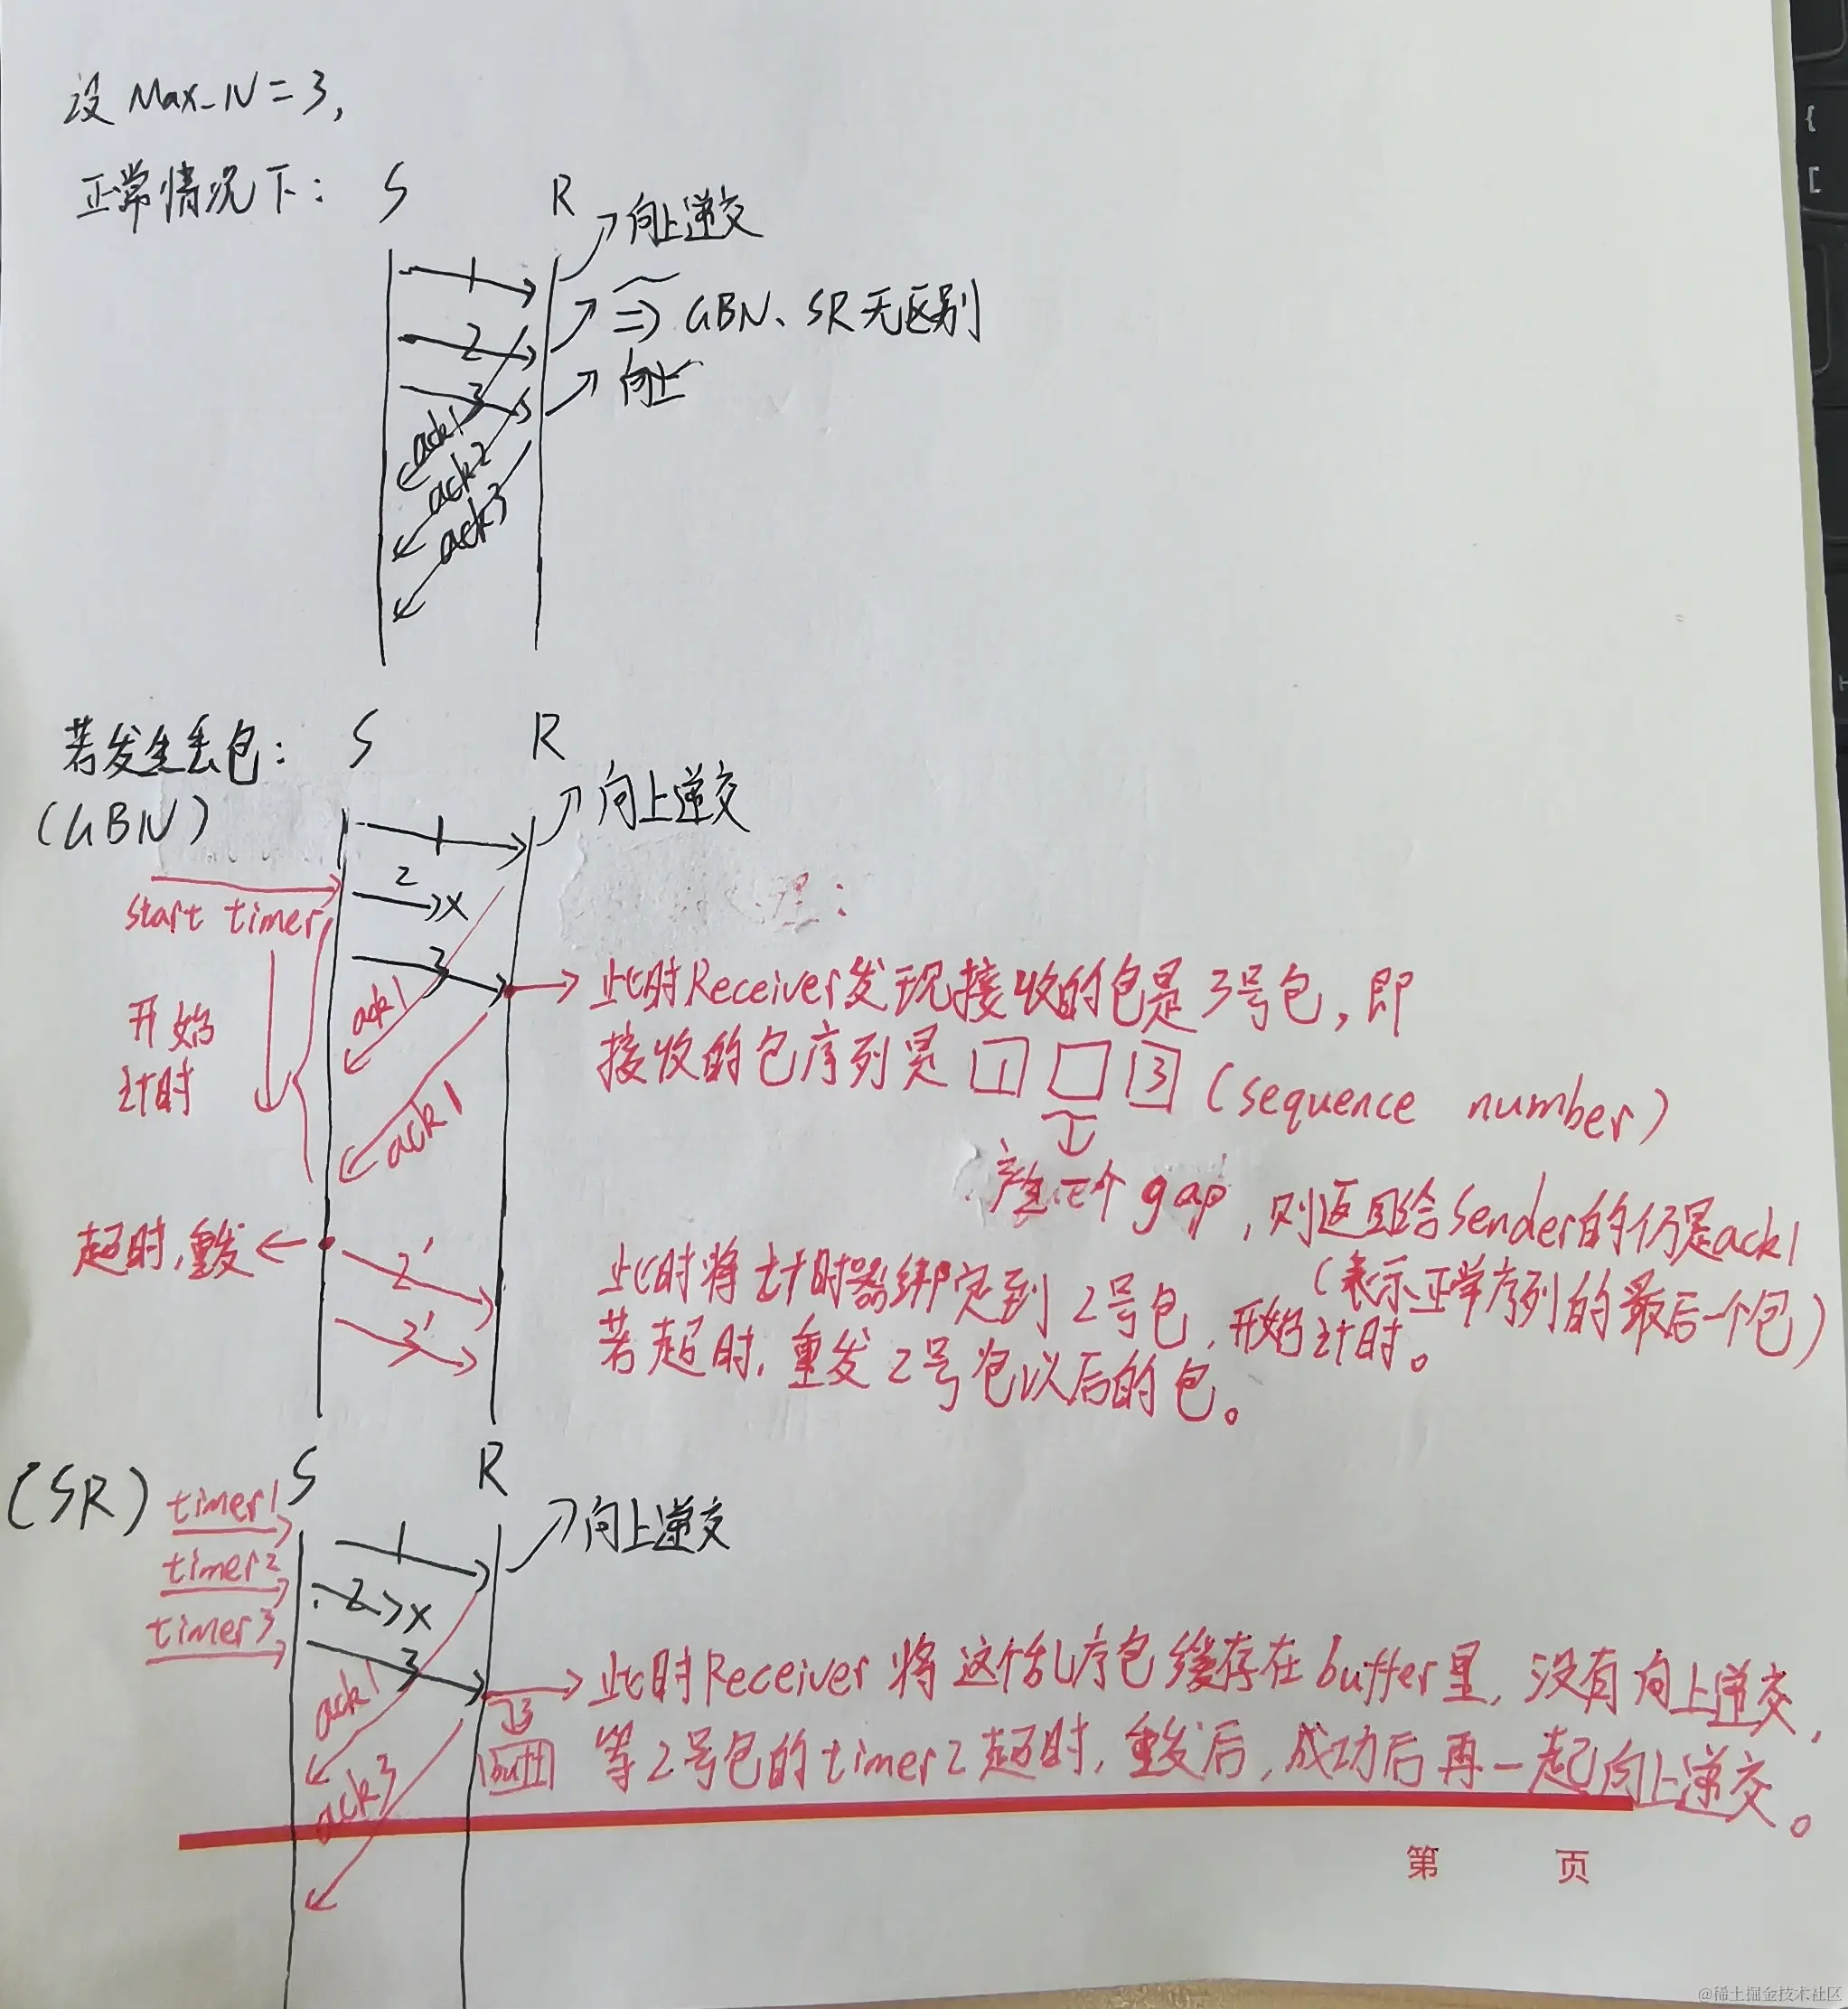 设 Max_N = 3,
正常情况下: S R
向上递交
1
2
⇒ GBN、SR无区别
3
向上
ack1
ack2
ack3
若发生丢包: S R
(GBN)
向上递交
1
2 x
start timer
3
理:
开始
计时
ack1
ack1
→ 此时Receiver发现接收的包是3号包, 即
接收的包序列是 1 3 (sequence number)
产生一个 gap, 则返回给Sender的仍是ack1
(表示正常序列的最后一个包)
超时,重发
2'
3'
此时将计时器绑定到2号包, 开始计时。
若超时, 重发2号包以后的包。
(SR) S R
timer1
timer2
timer3
向上递交
1
2 x
3
ack1
ack3
→ 此时Receiver将这个乱序包缓存在buffer里, 没有向上递交,
等2号包的timer2超时, 重发后, 成功后再一起向上递交。
第 页
@稀土掘金技术社区